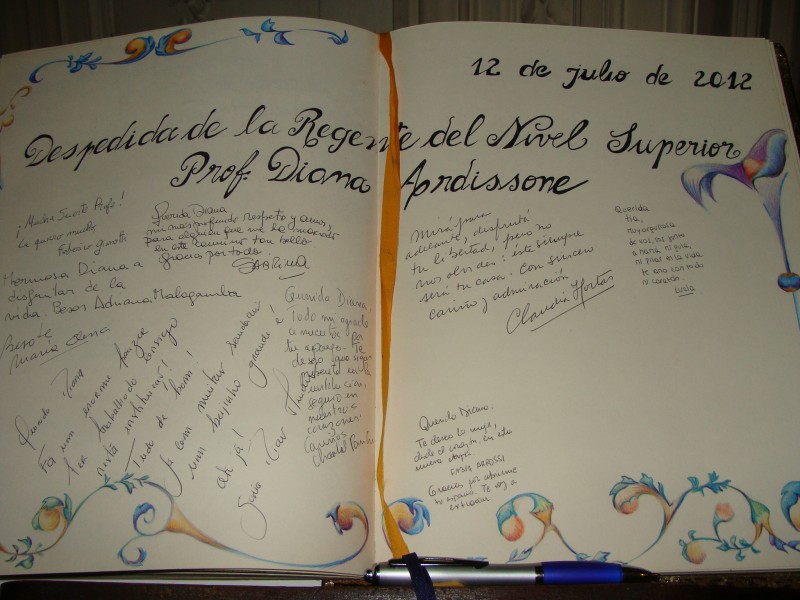 12 de julio de 2012
Despedida de la Regente del Nivel Superior
Prof. Diana Ardissone
¡Mucha Suerte Profe!
Le quiero mucho,
Federico
Querida Diana
mi mas profundo respeto y amor,
para alguien que me ha marcado
en este camino tan bello
Gracias por todo
SABRINA
Hermosa Diana a
disfrutar de la
vida. Besos Adriana Malagamba
Besote
María Elena
Querida Diana
Foi um enorme prazer
ter trabalhado contigo
nesta instituição!
Tudo de bom!
Já com muitas saudades
um beijinho grande e
até já!
Querida Diana,
Todo mi agrade
cimiento por
tu apoyo. Te
deseo que sigas
presente en la
institución,
seguro en
nuestros
corazones.
Cariños
Mirá para
adelante, disfrutá
tu libertad, pero no
nos olvides: ésta siempre
será tu casa. Con sincero
cariño y admiración
Claudia Hortas
Querida
tía,
muy orgullosa
de vos, me
a nana ni julia,
ni pilar en la vida
te amo con todo
mi corazón.
Luda
Querida Diana:
Te deseo lo mejor,
desde el corazón, en esta
nueva etapa
Gracias por abrirme
tu espacio. Te voy a
extrañar